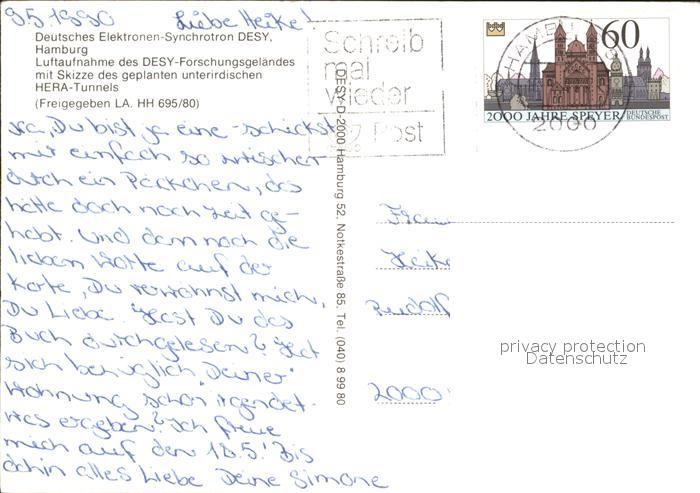 9.5.1990 Liebe Heike!
Deutsches Elektronen-Synchrotron DESY,
Hamburg
Luftaufnahme des DESY-Forschungsgeländes
mit Skizze des geplanten unterirdischen
HERA-Tunnels
(Freigegeben LA. HH 695/80)
Na, Du bist ja eine - schickst
mir einfach so zwischen
durch ein Päckchen, das
hätte doch noch Zeit ge-
habt. Und dann noch die
lieben Worte auf der
Karte, Du verwöhnst mich,
Du Liebe. Hast Du das
Buch durchgelesen? Hat
sich bezüglich "Deiner"
Wohnung schon irgendet-
was ergeben? Ich freue
mich auf den 18.5.! Bis
dahin alles Liebe Deine Simone
DESY D-2000 Hamburg 52, Notkestraße 85, Tel. (040) 8 99 80
Schreib
mal
wieder
Post
HAMBURG
2000
60
2000 JAHRE SPEYER
DEUTSCHE
BUNDESPOST
Frau
Heike
Rudolf
2000
privacy protection
Datenschutz